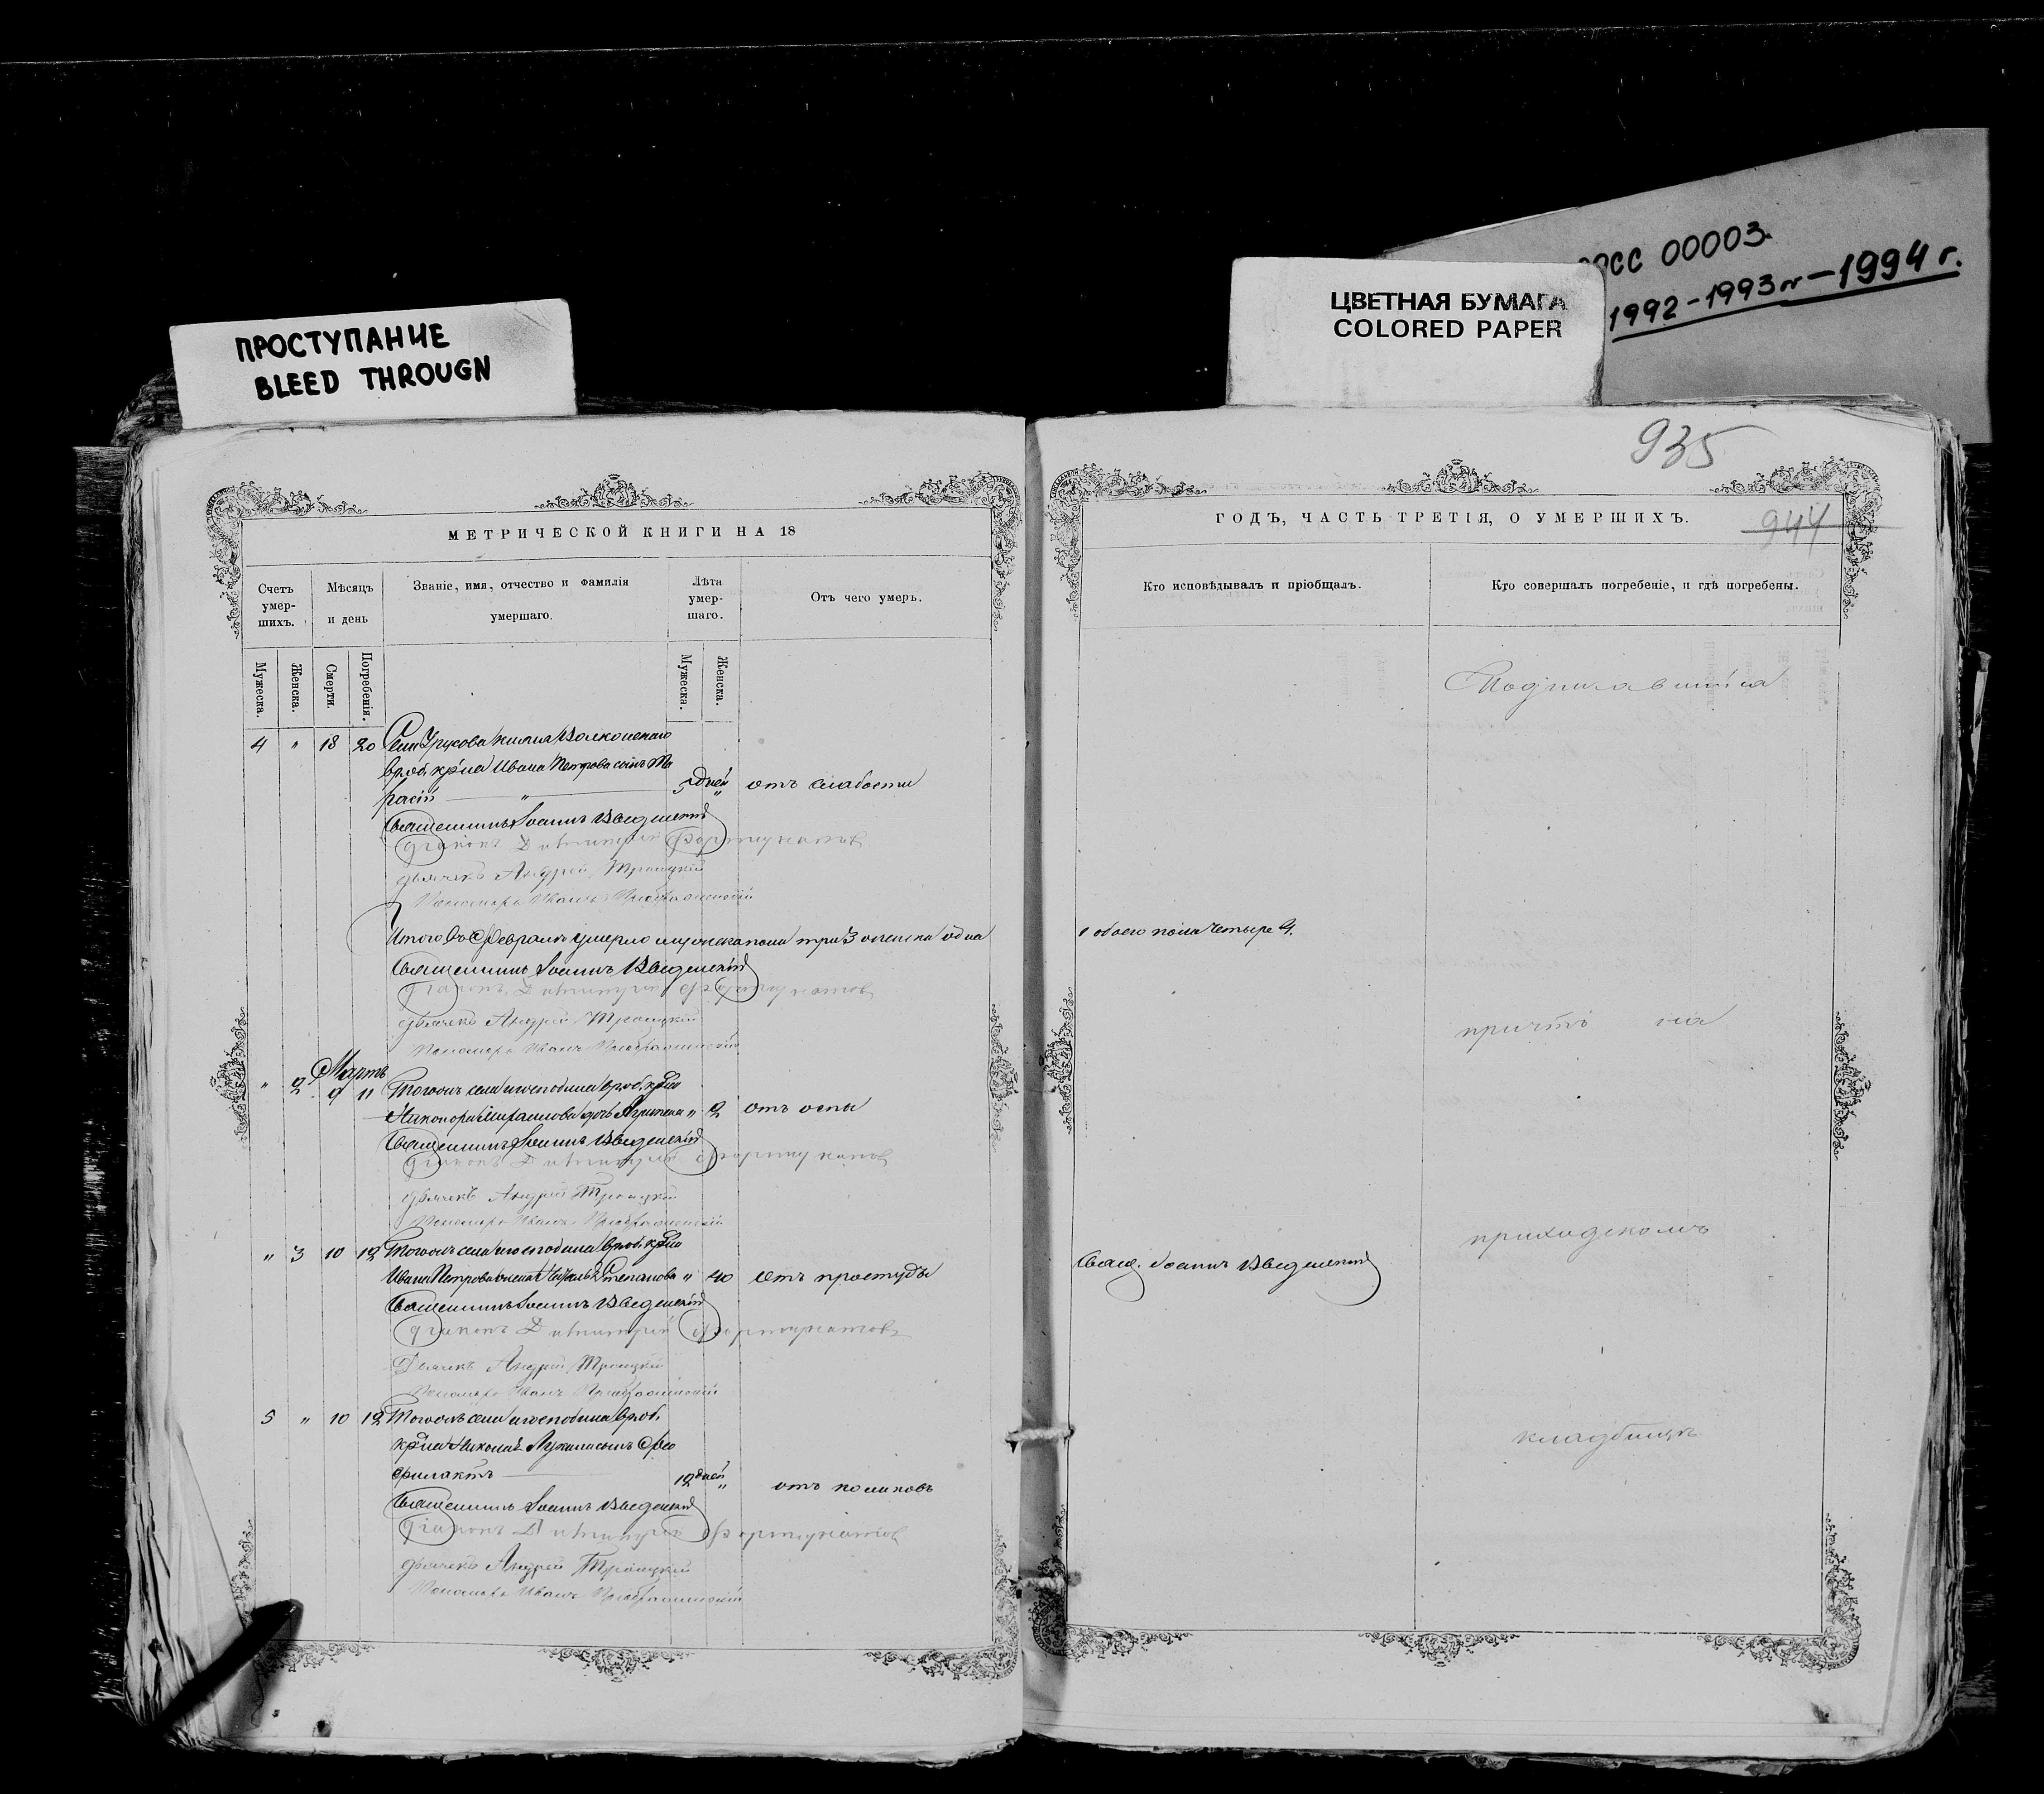 РОСС 00003
1992-1993гг-1994 г.
ЦВЕТНАЯ БУМАГА
COLORED PAPER
ПРОСТУПАНИЕ
BLEED THROUGN
935
944
МЕТРИЧЕСКОЙ КНИГИ НА 18
Счетъ умер-шихъ.
Мѣсяцъ и день
Званіе, имя, отчество и фамилія умершаго.
Лѣта умер-шаго.
Отъ чего умеръ.
Мужеска.
Женска.
Смерти.
Погребенія.
Мужеска.
Женска.
4 " 18 20 Села Урусова князя Волконскаго
врем. кр-на Ивана Петрова сынъ Та
расій " 5 дней " отъ слабости
Священникъ Іоаннъ Введенскій
діаконъ Димитрій Фортунатовъ
дьячекъ Андрей Троицкій
Пономарь Иванъ Преображенскій
Итого въ Февралѣ умерло мужеска пола три 3 женска одна
Священникъ Іоаннъ Введенскій
діаконъ Димитрій Фортунатовъ
дьячекъ Андрей Троицкій
Пономарь Иванъ Преображенскій
Мартъ
" 2 9 11 Тогожъ села и господина врем. кр-на
Никонора Михаилова дочь " 2 отъ оспы
Священникъ Іоаннъ Введенскій
діаконъ Димитрій Фортунатовъ
дьячекъ Андрей Троицкій
Пономарь Иванъ Преображенскій
" 3 10 12 Тогожъ села и господина врем. кр-на
Ивана Петрова жена Степанова " 40 отъ простуды
Священникъ Іоаннъ Введенскій
діаконъ Димитрій Фортунатовъ
Дьячекъ Андрей Троицкій
Пономарь Иванъ Преображенскій
5 " 10 12 Тогожъ села и господина врем.
кр-на Николая Лукина сынъ Фео
филактъ 12 дней " отъ коликовъ
Священникъ Іоаннъ Введенскій
діаконъ Димитрій Фортунатовъ
дьячекъ Андрей Троицкій
Пономарь Иванъ Преображенскій
ГОДЪ, ЧАСТЬ ТРЕТІЯ, О УМЕРШИХЪ.
Кто исповѣдывалъ и пріобщалъ.
Кто совершалъ погребеніе, и гдѣ погребены.
Подписавшійся
1 обоего пола четыре 4.
причтъ на
приходскомъ
Свящ. Іоаннъ Введенскій
кладбищѣ